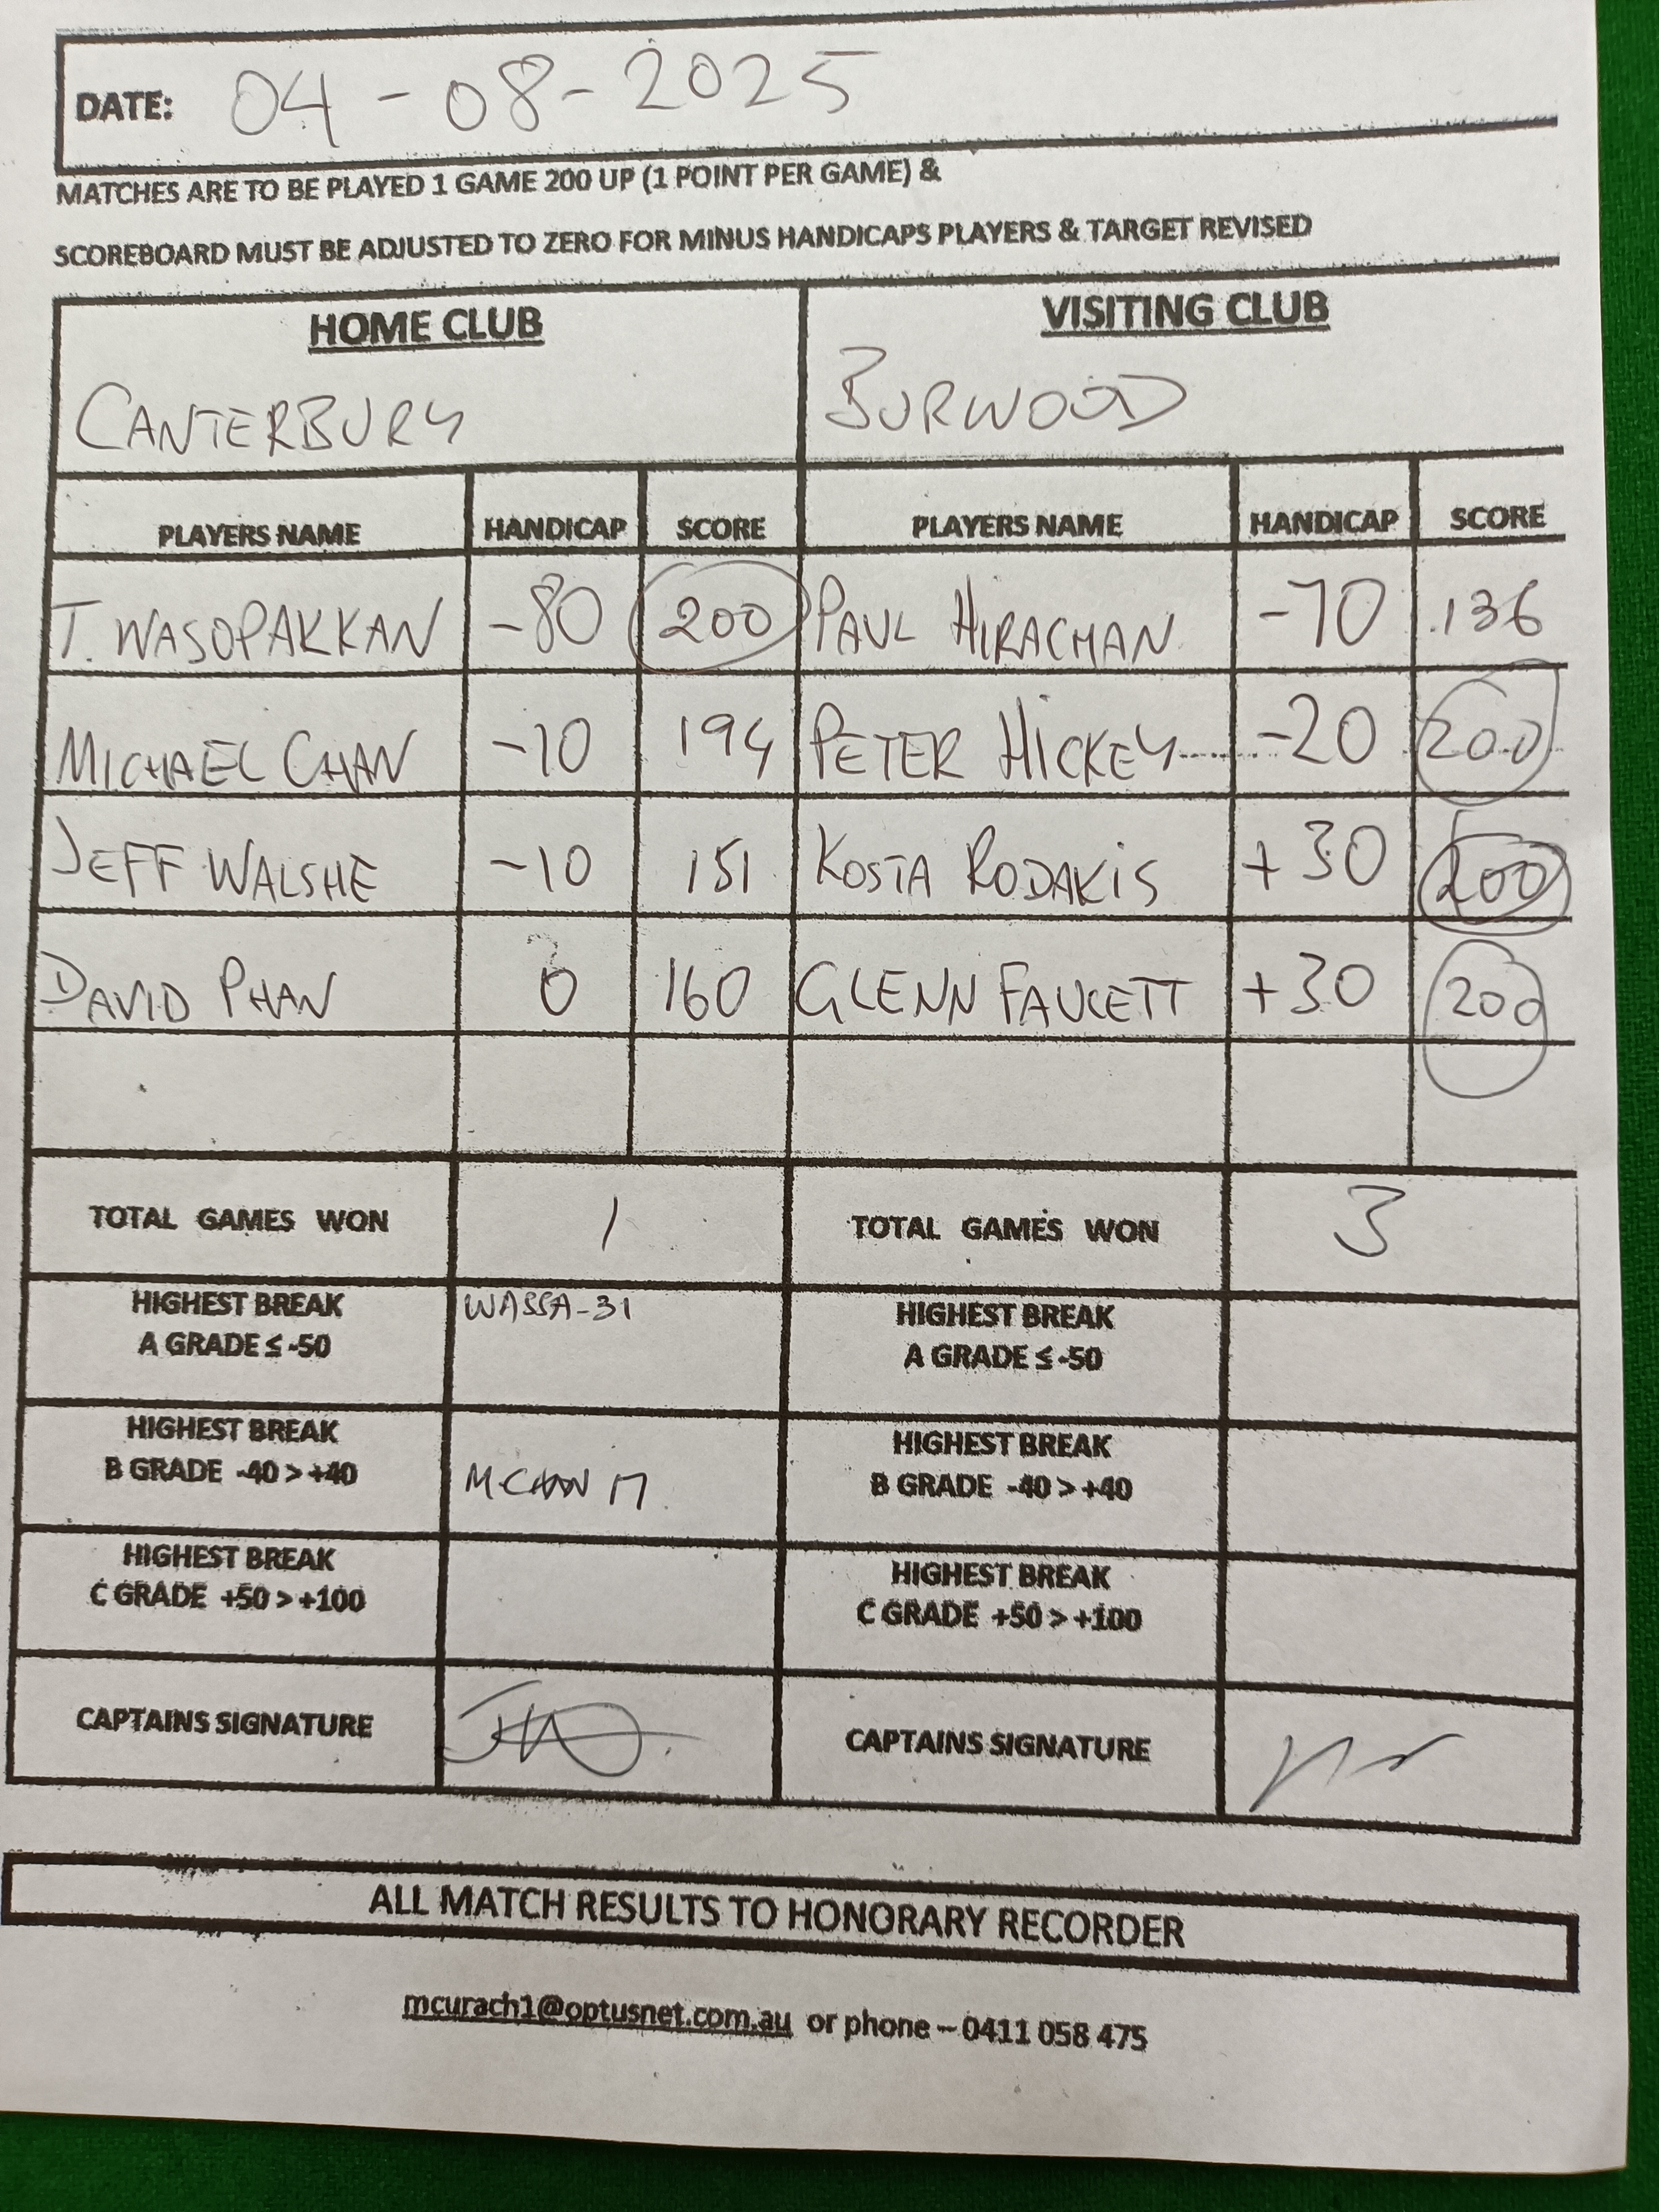 DATE: 04-08-2025
MATCHES ARE TO BE PLAYED 1 GAME 200 UP (1 POINT PER GAME) &
SCOREBOARD MUST BE ADJUSTED TO ZERO FOR MINUS HANDICAPS PLAYERS & TARGET REVISED
HOME CLUB VISITING CLUB
CANTERBURY BURWOOD
PLAYERS NAME HANDICAP SCORE PLAYERS NAME HANDICAP SCORE
T. WASOPAKKAN -80 200 PAUL HIRACMAN -70 136
MICHAEL CHAN -10 194 PETER HICKEY -20 200
JEFF WALSHE -10 151 KOSTA RODAKIS +30 200
DAVID PHAN 0 160 GLENN FAUCETT +30 200
TOTAL GAMES WON 1 TOTAL GAMES WON 3
HIGHEST BREAK WASSA-31 HIGHEST BREAK
A GRADE ≤ -50 A GRADE ≤ -50
HIGHEST BREAK HIGHEST BREAK
B GRADE -40 > +40 M.CHAN 17 B GRADE -40 > +40
HIGHEST BREAK HIGHEST BREAK
C GRADE +50 > +100 C GRADE +50 > +100
CAPTAINS SIGNATURE CAPTAINS SIGNATURE
ALL MATCH RESULTS TO HONORARY RECORDER
mcurach1@optusnet.com.au or phone – 0411 058 475